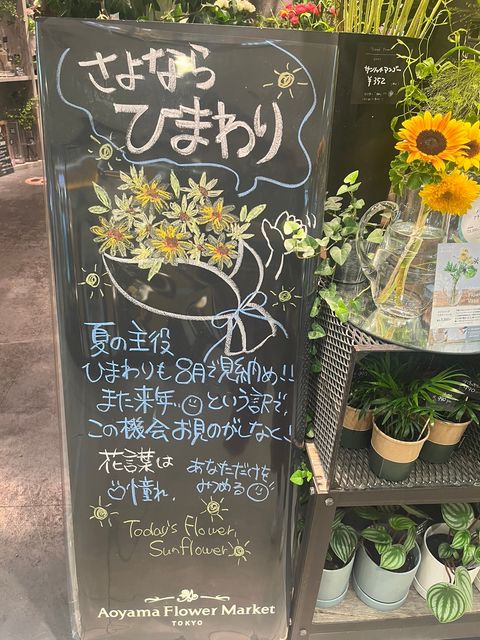 さよなら
ひまわり
夏の主役
ひまわりも8月で見納め!!
また来年..という訳で、
この機会お見のがしなく!
花言葉は
憧れ、
あなただけを
みつめる
Today's Flower,
Sunflower
Aoyama Flower Market
TOKYO
サンリッチマンゴー
¥352